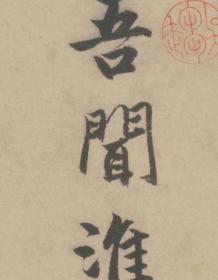 吾聞淮